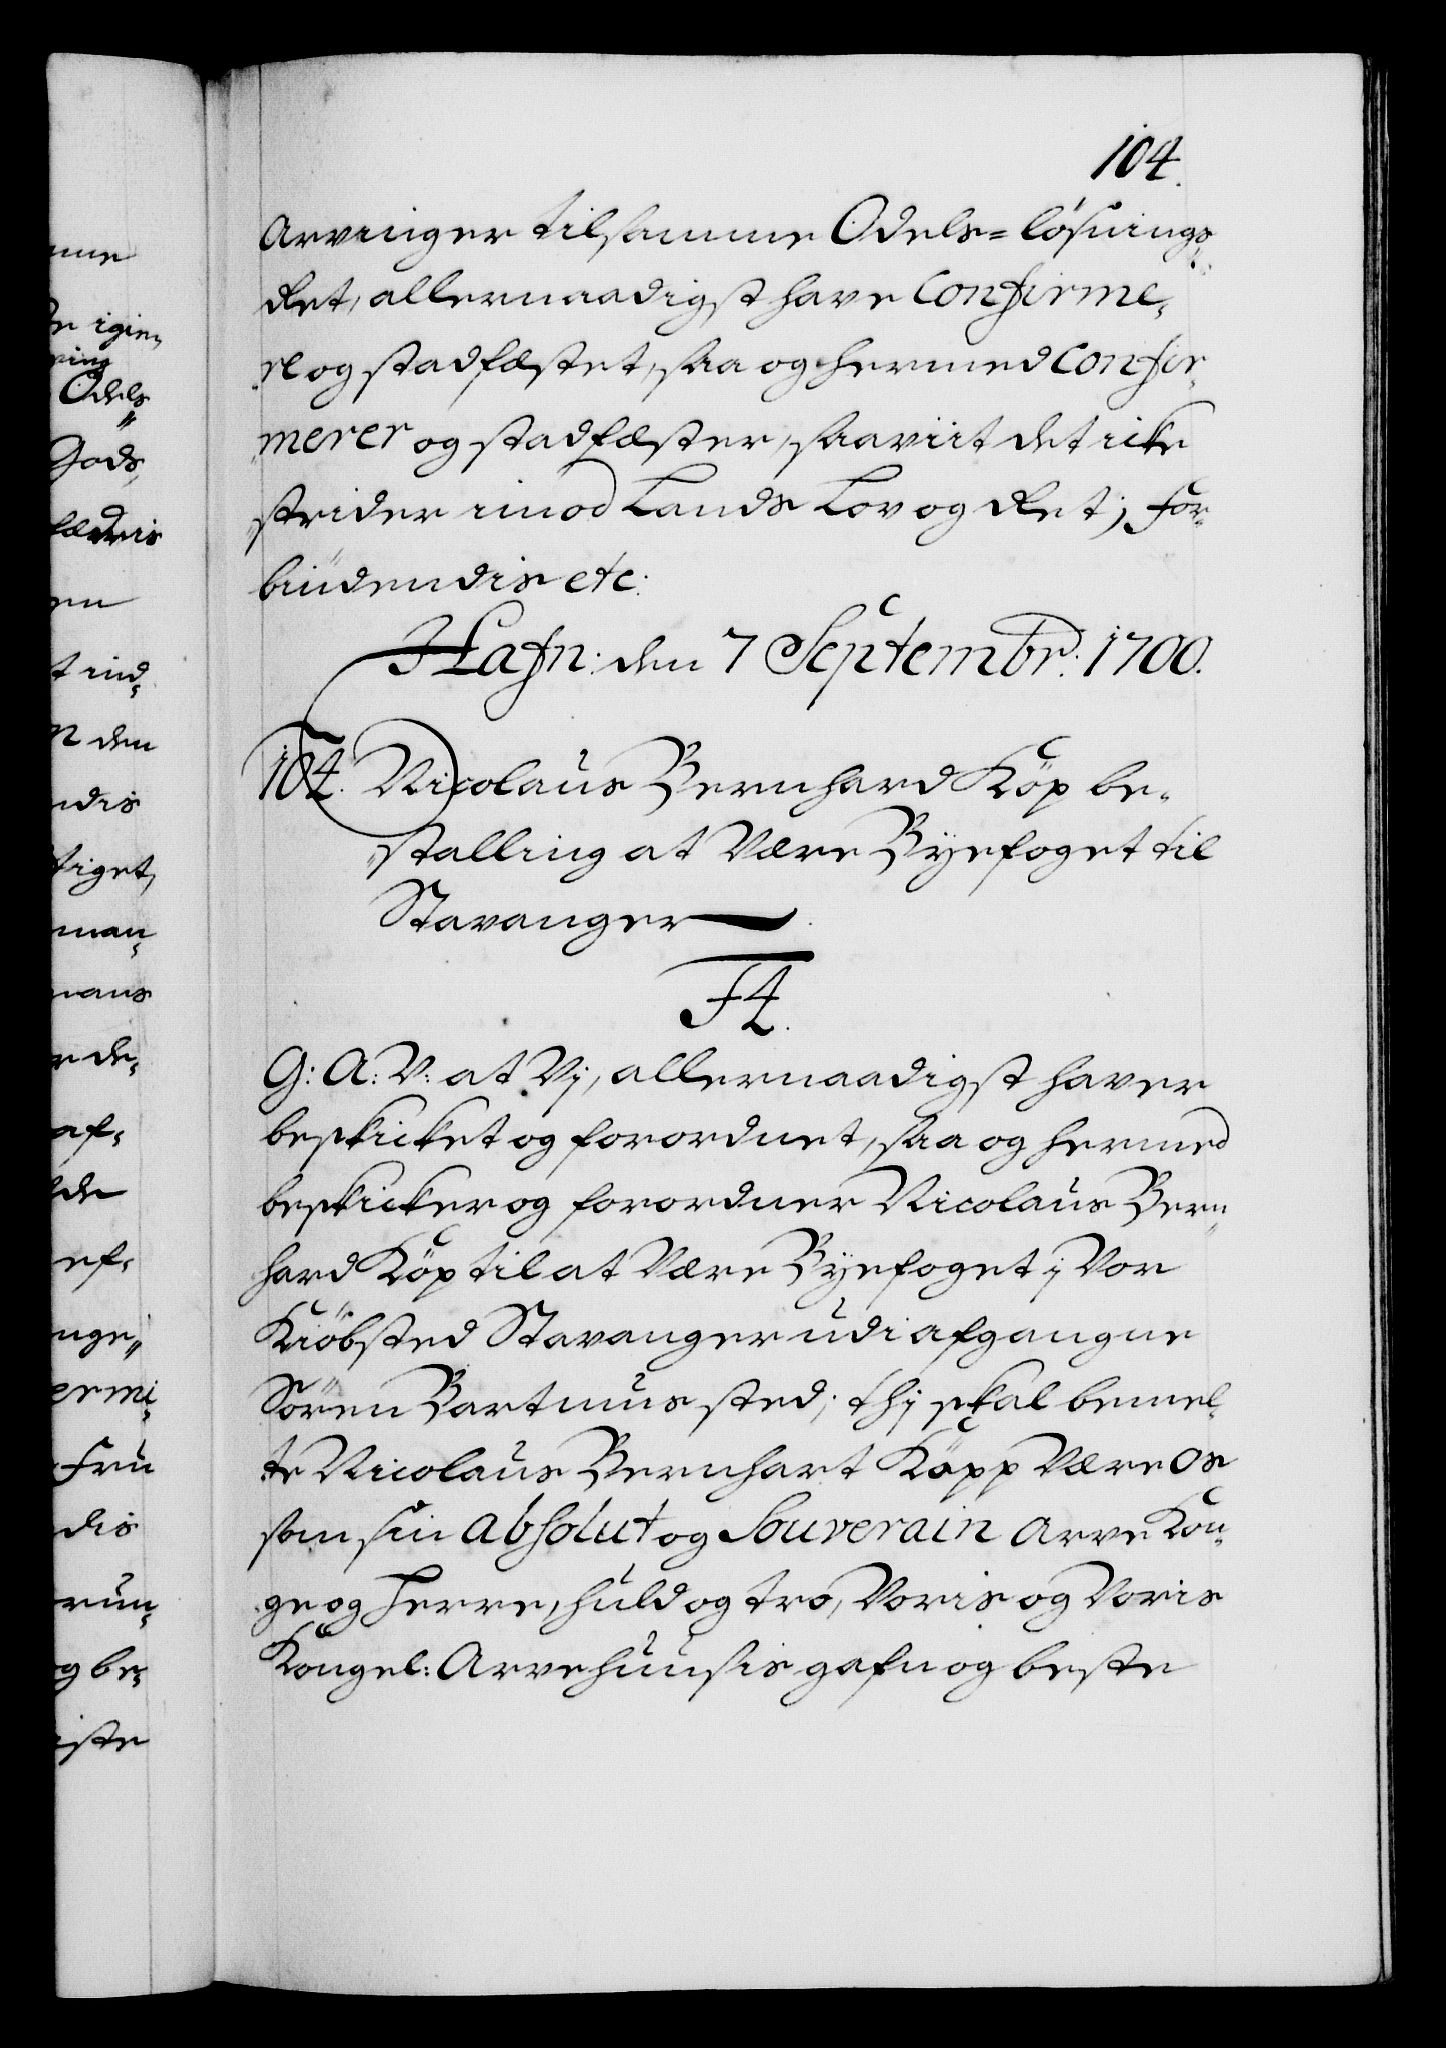 104.
Arvinger til samme Odels=løsnings
Ret, allernaadigst have Confirme,
re og stadfæstet, saa og hermed Confir,
merer og stadfæster, saavit det icke
strider imod Lands Lov og Ret; For,
biüdendis etc:
Hafn: den 7 Septembr: 1700.
104. Nicolaus Bernhard Köp be,
stalling at Være Byefoget til
Stavanger
F4.
G: A: V: at Vj, allernaadigst haver
beskicket og forordnet, saa og hermed
beskicker og forordner Nicolaus Bern
hard Köp til at Være Byefoget j Vor
Kiöbsted Stavanger udi afgangne
Sören Bartmus sted; thj skal bemel,
te Nicolaus Bernhart Köpp Være Os
som sin absolut og Souverain Arve Kon,
ge og Herre, huld og tro, Voris og Voris
Kongel: Arvehuusis gafn og beste